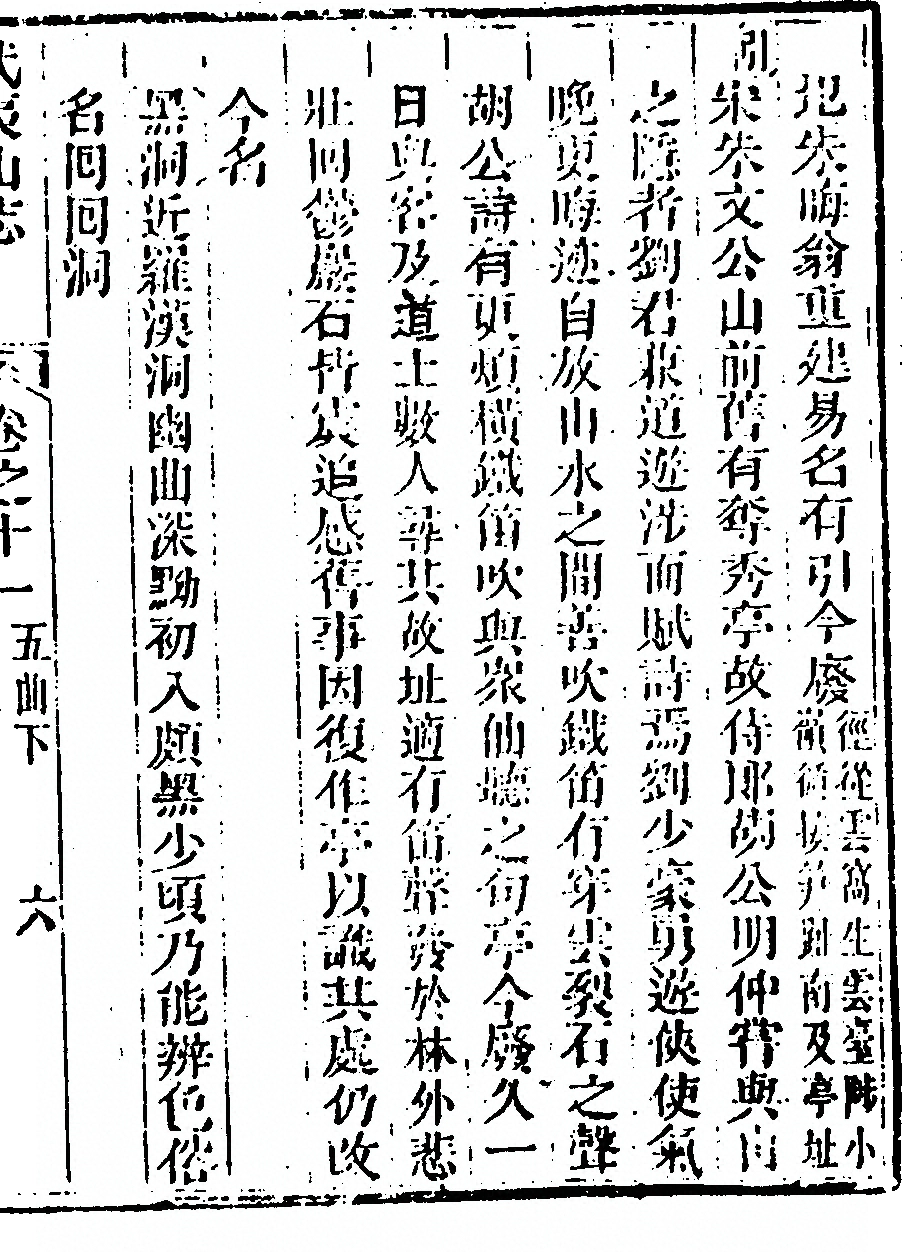 圯朱晦翁重建易名有引今廢徑從雲窩生雲臺陟小
嶺循對南及亭址
引
宋朱文公山前舊有奪秀亭故侍郎胡公明仲嘗與山
之隱者劉君兼道遊涉而賦詩焉劉少豪勇遊俠使氣
晚更晦迹自放山水之間善吹鐵笛有穿雲裂石之聲
胡公詩有更煩橫鐵笛吹與眾仙聽之句亭今廢久一
日與客及道士數人尋其故址適有笛聲發於林外悲
壯回鬱巖石皆震追感舊事因復作亭以識其處仍改
今名
黑洞近羅漢洞幽曲深黝初入頗黑少頃乃能辨色俗
名囘囘洞
武夷山志 卷之十一 五曲下 六